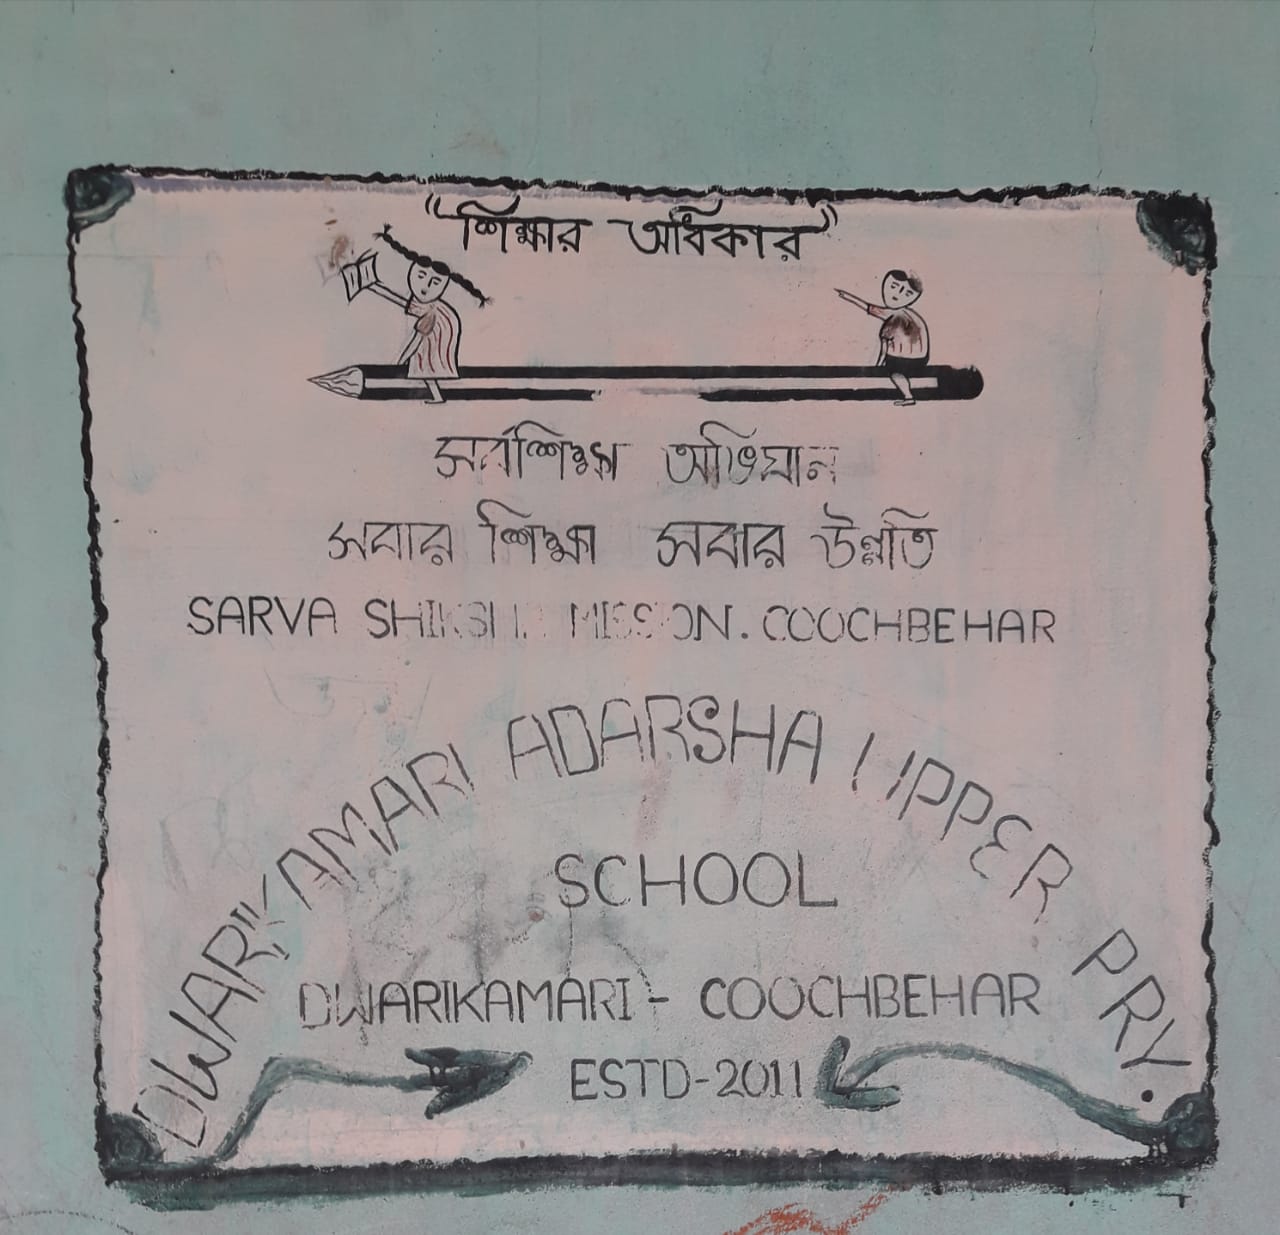 "শিক্ষার অধিকার"
সর্বশিক্ষা অভিযান
সবার শিক্ষা সবার উন্নতি
SARVA SHIKSHA MISSION. COOCHBEHAR
DWARIKAMARI ADARSHA UPPER PRY.
SCHOOL
DWARIKAMARI - COOCHBEHAR
ESTD-2011